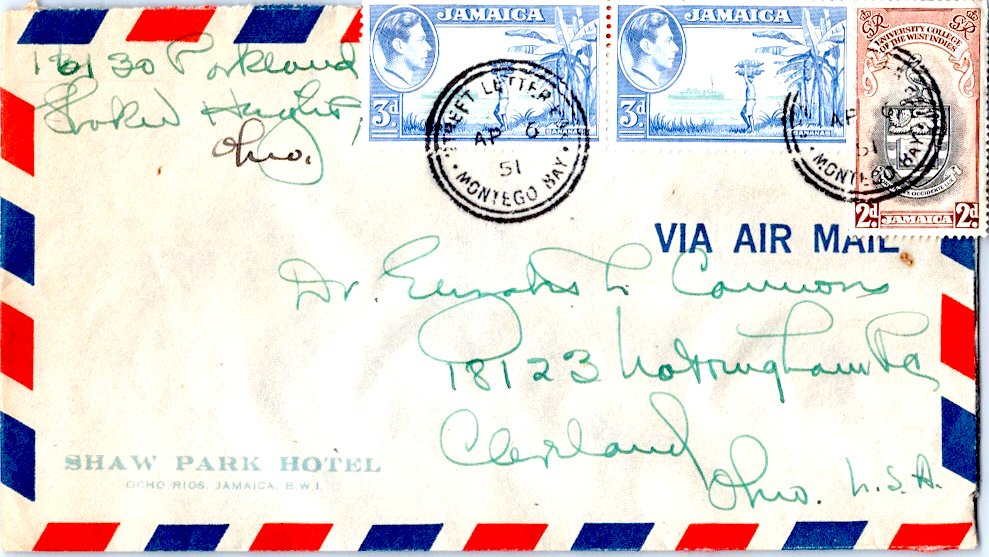 16130 Parkland
Shaker Heights,
Ohio.
JAMAICA
3d
BANANAS
JAMAICA
3d
BANANAS
UNIVERSITY COLLEGE
OF THE WEST INDIES
2d. JAMAICA 2d.
STREET LETTER
AP 6
51
MONTEGO BAY
AP 6
51
MONTEGO BAY
VIA AIR MAIL
Dr. Elizabeth L. Cannons
18123 Nottingham Rd
Cleveland
Ohio. U.S.A.
SHAW PARK HOTEL
OCHO RIOS, JAMAICA, B.W.I.